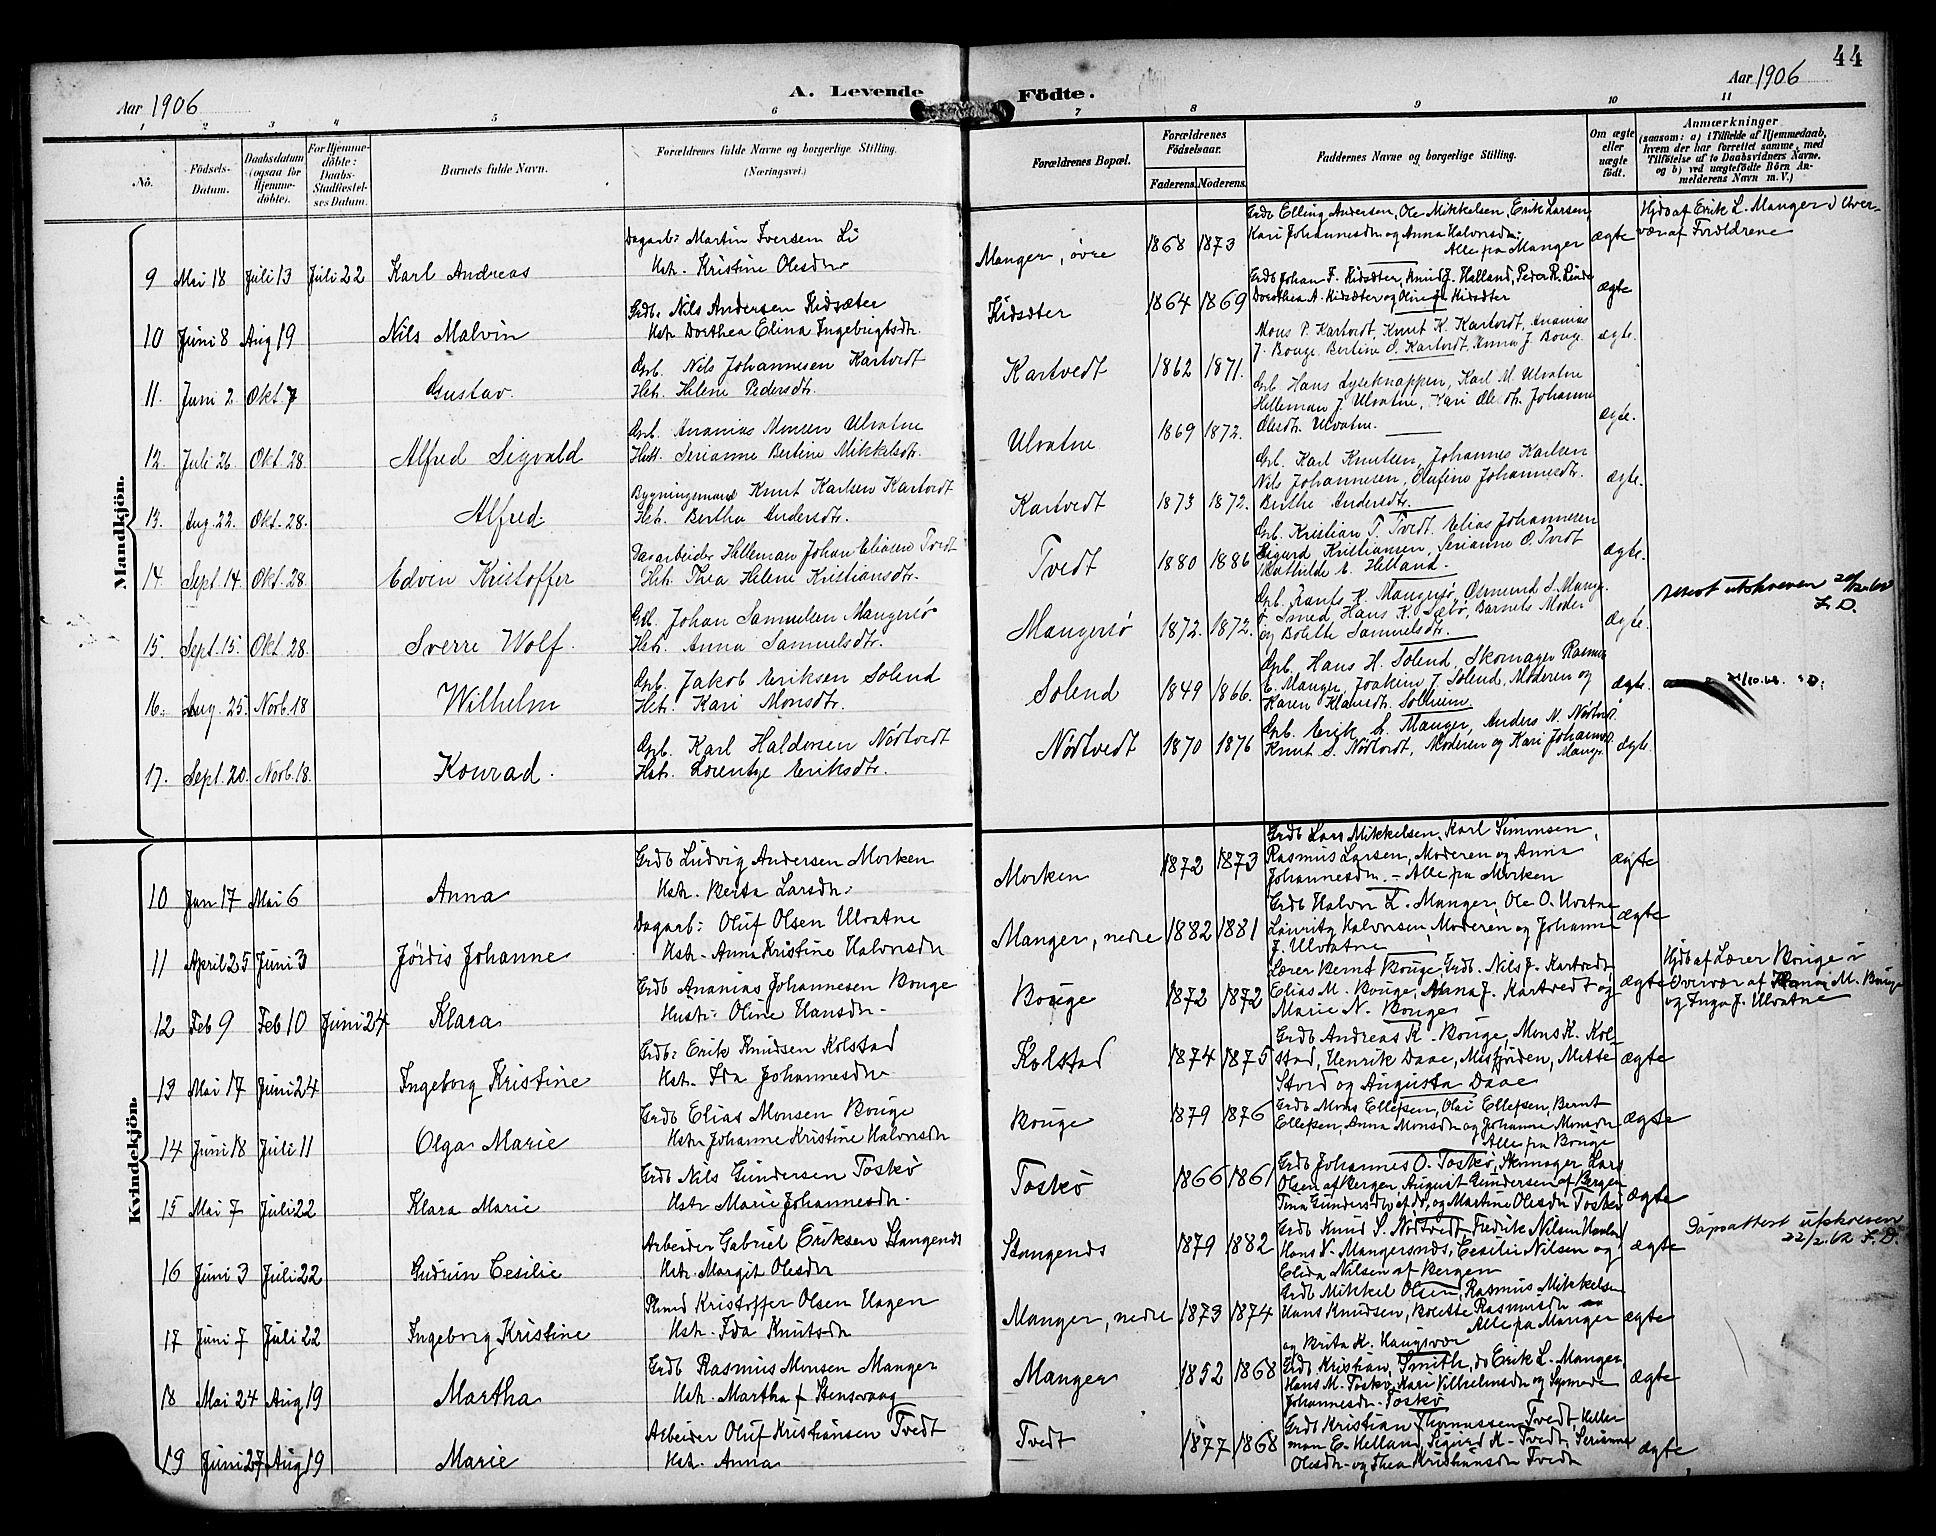 44
Aar 1906
A. Levende Födte.
Aar 1906
1 2 3 4 5 6 7 8 9 10 11
No.
Födsels-Datum.
Daabsdatum (ogsaa for Hjemmedöbte).
For Hjemmedöbte: Daabs-Stadfæstelses Datum.
Barnets fulde Navn.
Forældrenes fulde Navne og borgerlige Stilling.
(Næringsvei.)
Forældrenes Bopæl.
Forældrenes Födselsaar.
Faderens. Moderens.
Faddernes Navne og borgerlige Stilling.
Om ægte eller uægte födt.
Anmærkninger
(saasom: a) i Tilfælde af Hjemmedaab, hvem der har forrettet samme, med Tilföielse af to Daabsvidners Navne, og b) ved uægtefödte Börn Anmelderens Navn m. V.)
Mandkjön.
9 Mai 18 Juli 13 Juli 22 Karl Andreas
Dagarb: Martin Iversen Li
Hstr. Kristine Olesdtr
Manger, övre 1868 1873
Grdb Elling Andersen, Ole Mikkelsen, Erik Larsen
Kari Johannesdtr og Anna Halvorsdtr.
Alle paa Manger
ægte
Hjdb af Erik L. Manger i Overvær af Forældrene
10 Juni 8 Aug 19 Nils Malvin
Grdb: Nils Andersen Kidsæter
Hstr Dorthea Elina Ingebrigtsdtr.
Kidsæter 1864 1869
Grdb Johan F. Kidsæter, Knud J. Helland, Peder R. Linde
Dorothea A. Kidsæter og Oline Kidsæter
ægte
11. Juni 2 Okt 7 Gustav.
Grb. Nils Johannesen Kartvedt
Hstr. Helene Pedersdtr.
Kartvedt 1862 1871.
Mons P. Kartvedt, Knut K. Kartvedt, Ananias
J. Bouge, Bertine S. Kartvedt, Anna J. Bouge
ægte.
12. Juli 26 Okt. 28 Alfred Sigvald
Grb. Ananias Monsen Ulvatne
Hstr. Serianne Bertine Mikkelsdtr.
Ulvatne 1869 1872.
Grb. Hans Lyseknappen, Karl M. Ulvatne
Helleman J. Ulvatne, Kari Olesdtr. Johanne
Olesdtr. Ulvatne.
ægte.
13. Aug. 22. Okt. 28. Alfred.
Bygningsmand Knut Karlsen Kartvedt
Hstr. Bertha Andersdtr.
Kartvedt 1873 1872.
Grb. Karl Knutsen, Johannes Karlsen
Nils Johannesen, Olufine Johannesdtr.
Berthe Andersdtr.
ægte.
14. Sept. 14. Okt. 28. Edvin Kristoffer
Dagarbeider Helleman Johan Eliasen Tvedt
Hstr. Thea Helene Kristiansdtr.
Tvedt 1880 1886
Grb. Kristian T. Tvedt. Elias Johannesen
Sigurd Kristiansen, Serianne O. Tvedt
Mathilde E. Helland.
ægte.
15. Sept. 15. Okt. 28. Sverre Wolf.
Grb. Johan Samuelsen Mangersö
Hstr. Anna Samuelsdtr.
Mangersö 1872. 1872.
K. Mangersö, Osmund S. Manger
Smed, Hans K. Sæbö, Barnets Moder
og Bolette Samuelsdtr.
ægte.
utskreven
F. D.
16. Aug. 25. Novb. 18 Wilhelm
Grb. Jakob Eriksen Solend
Hstr. Kari Monsdtr.
Solend 1849 1866.
Grb. Hans H. Solend, Skomager Rasmus
E. Manger, Joakim J. Solend, Moderen og
Karen Klausdtr. Solheim
ægte.
17. Sept. 20. Novb. 18. Konrad.
Grb. Karl Haldorsen Nödtvedt
Hstr. Lorentze Eriksdtr.
Nödtvedt 1870 1876
Grb. Erik L. Manger, Anders M. Nödtvedt
Knut S. Nödtvedt, Moderen og Kari Johannesd.
Manger
ægte.
Kvindekjön.
10 Jan 17 Mai 6 Anna
Grdb Ludvig Andersen Morken
Hstr. Berta Larsdtr.
Morken 1872 1873
Grdb Lars Mikkelsen, Karl Simonsen,
Rasmus Larsen, Moderen og Anna
Johannesdtr. - Alle paa Morken
ægte
11 April 25 Juni 3 Jördis Johanne
Dagarb: Oluf Olsen Ulvatne
Hstr. Anna Kristine Halvorsdtr
Manger, nedre 1882 1881
Grdb Halvor L. Manger, Ole O. Ulvatne
Lauritz Halvorsen, Moderen og Johanne
J. Ulvatne
ægte
12 Feb 9 Feb 10 Juni 24 Klara
Grdb Ananias Johannesen Bouge
Hustr: Oline Hansdtr.
Bouge 1872 1872
Lærer Bernt Bouge, Grdb. Nils J. Kartvedt,
Elias M. Bouge, Anna J. Kartvedt og
Marie N. Bouge
ægte
Hjdb af Lærer Bouge i
Overvær af M. Bouge
og Inga J. Ulvatne
13 Mai 17 Juni 24 Ingeborg Kristine
Grdb: Erik Knudsen Kolstad
Hstr. Ida Johannesdtr
Kolstad 1874 1875
Grdb Andreas K. Bouge, Mons K. Kolstad, Henrik Daae, Misfjorden, Mette
Stord og Augusta Daae
ægte
14 Juni 18 Juli 11 Olga Marie
Grdb Elias Monsen Bouge
Hstr Johanne Kristine Halvorsdtr
Bouge 1879 1876
Grdb Mons Ellefsen, Olai Ellefsen, Bernt
Ellefsen, Anna Monsdtr og Johanne Monsdtr
Alle paa Bouge
ægte
15 Mai 7 Juli 22 Klara Marie
Grdb Nils Gundersen Toskö
Hstr Marie Johannesdtr.
Toskö 1866 1861
Grdb Johannes O. Toskö, Skomager Lars
Olsen af Bergen, August Gundersen af Bergen
Tina Gundersdtr af do, og Martine Olesdtr Toskö
ægte
16 Juni 3 Juli 22 Gudrun Cesilie
Arbeider Gabriel Eriksen Stangenes
Hstr. Margit Olesdtr
Stangenes 1879 1882
Grdb Knud S. Nödtvedt, Fredrik Nilsen
Hans V. Mangersnes, Cesilie Nilsen og
Elida Nilsen af Bergen
ægte
Dåpsattest utskreven
22/2.62 F.D.
17 Juni 7 Juli 22 Ingeborg Kristine
Plmd Kristoffer Olsen Hagen
Hstr. Ida Knutsdtr
Manger, nedre 1873 1874
Grdb Mikkel Olsen, Rasmus Mikkelsen
Hans Knudsen, Bolette Rasmusdtr
Alle paa Manger
og Brita K. Haugsvær
ægte
18 Mai 24 Aug 19 Martha
Grdb Rasmus Monsen Manger
Hstr. Martha f Stensvaag
Manger 1852 1868
Grdb Kristian Smith, do Erik L. Manger,
Hans M. Toskö, Kari Vilhelmsdtr og Synneve
Johannesdtr Toskö
ægte
19 Juni 27 Aug 19 Marie
Arbeider Oluf Kristiansen Tvedt
Hstr. Anna
Tvedt 1877 1868
Grdb Kristian Thomassen Tvedt, Helleman E. Helland, Sigurd K. Tvedt, Serianne
Olesdtr og Thea Kristiansdtr Tvedt
ægte